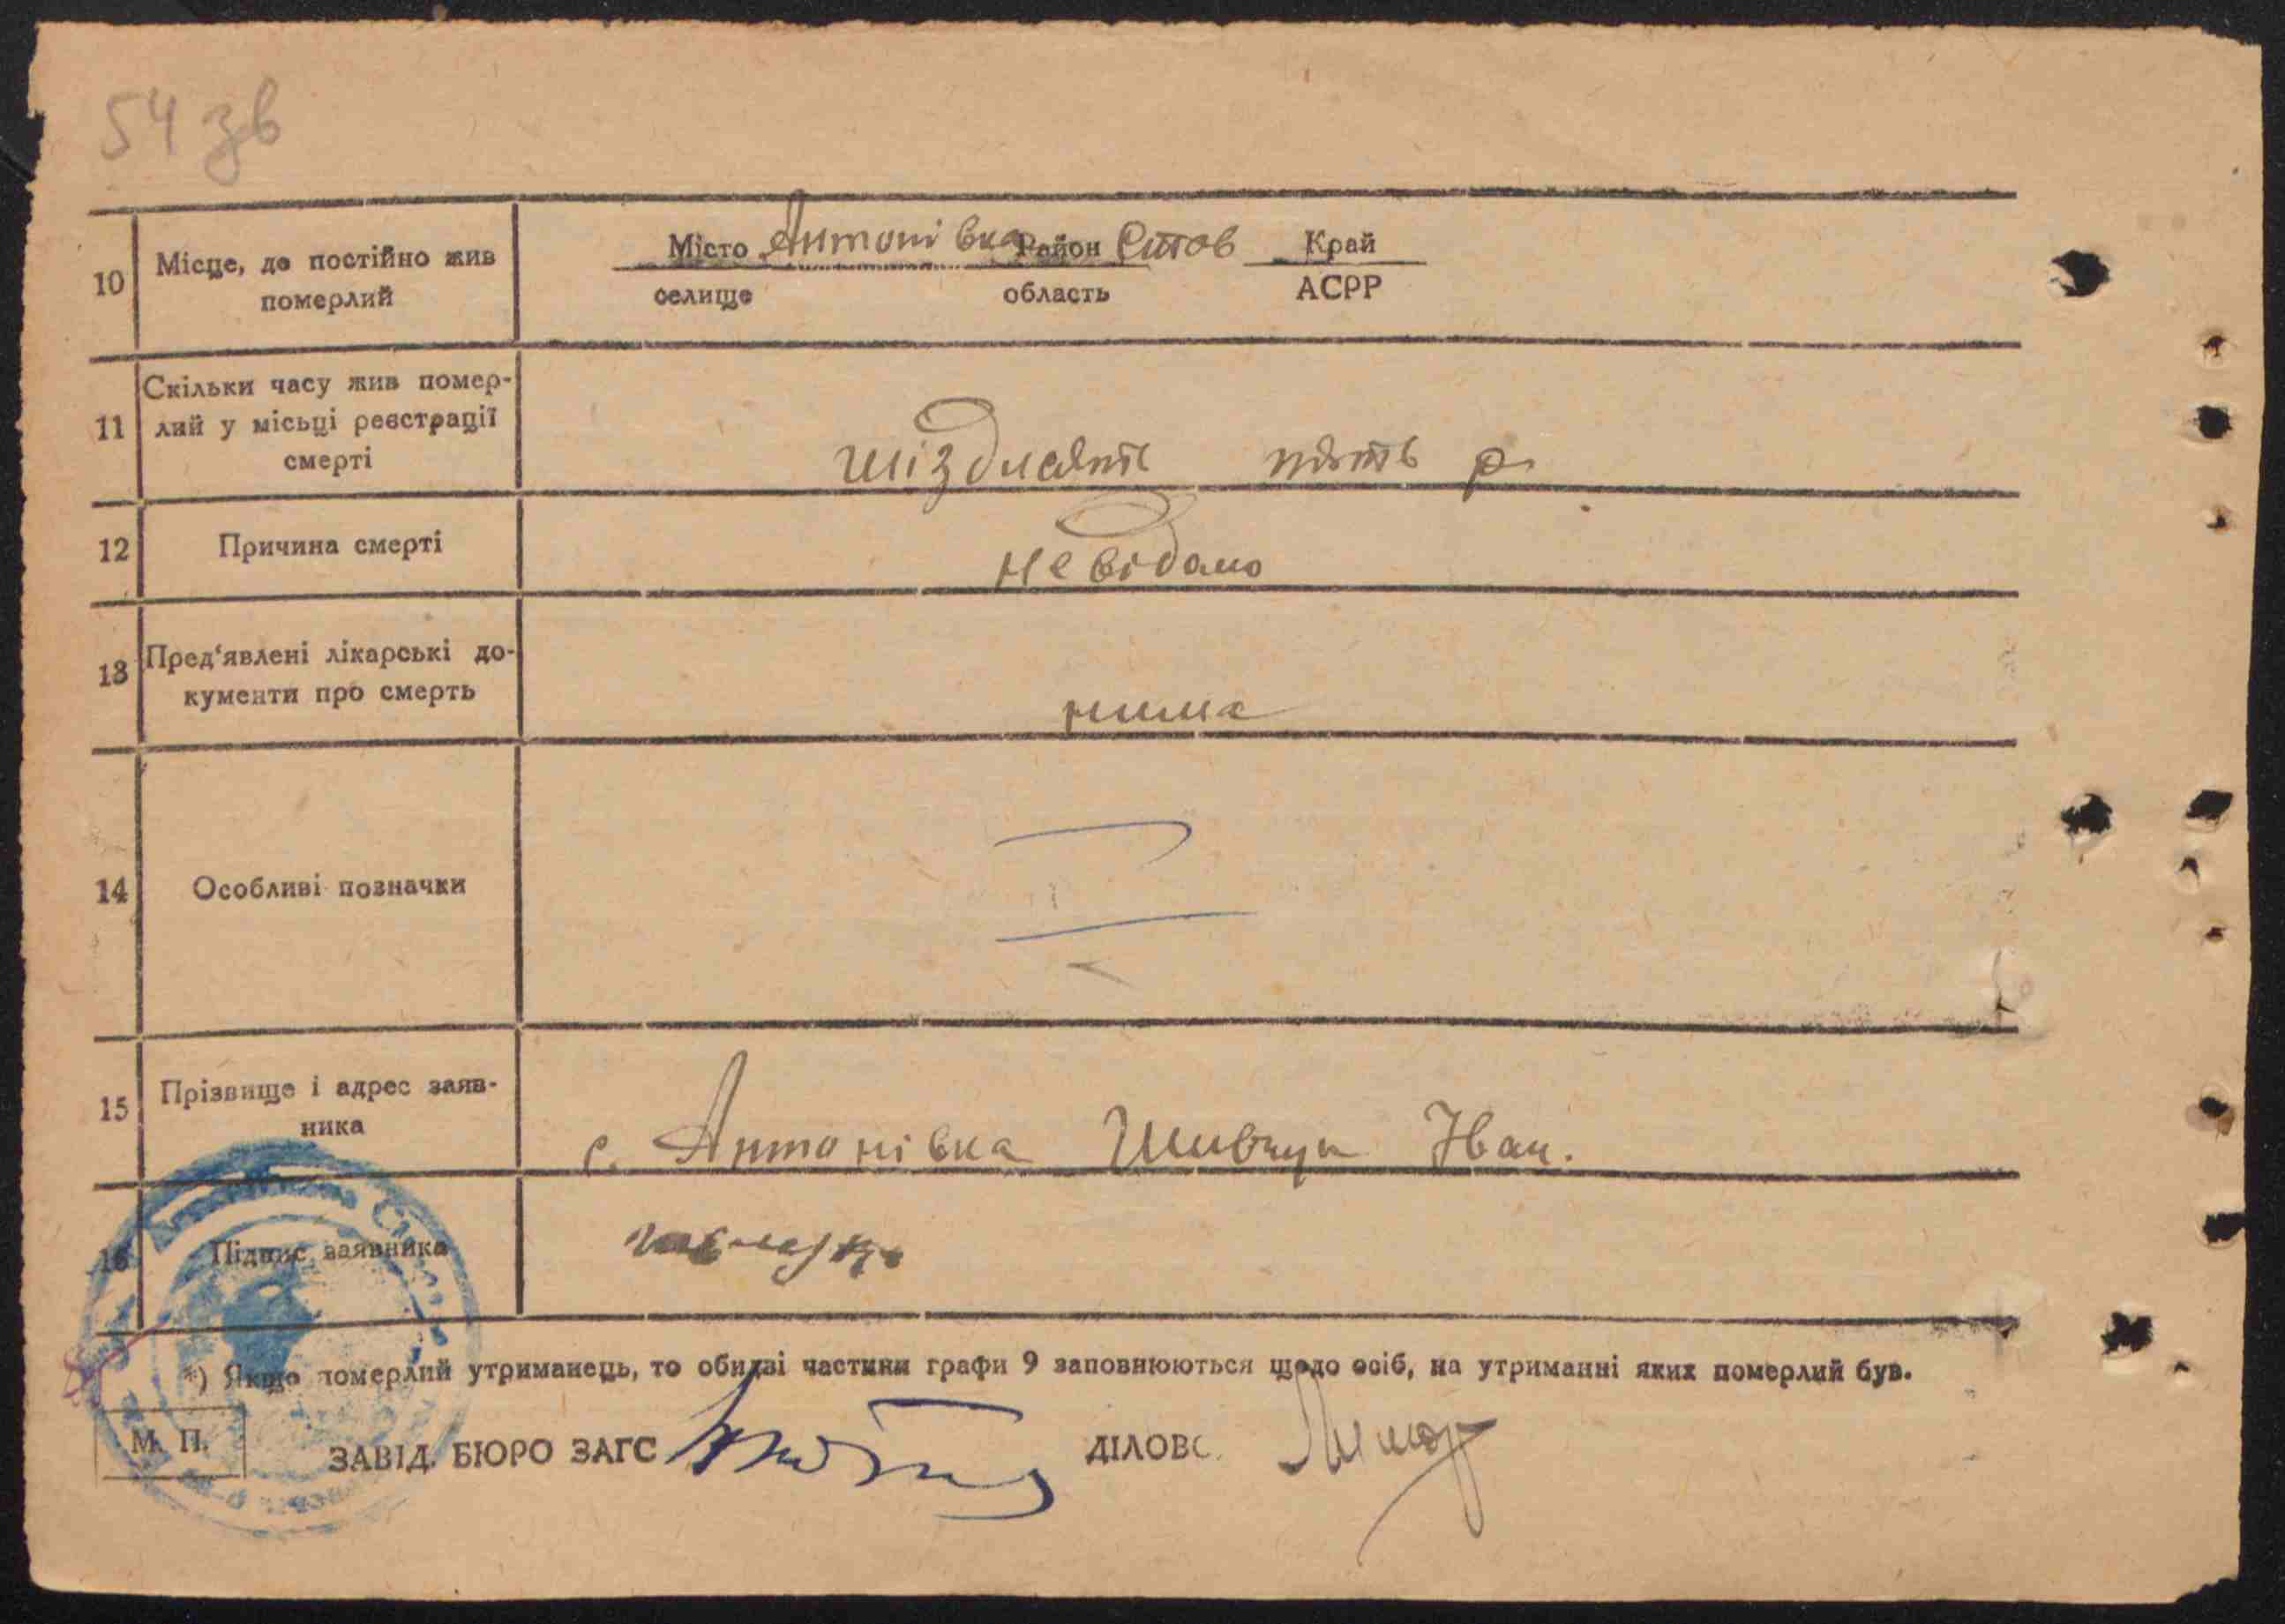 54 зв
10 Місце, де постійно жив померлий
Місто Антонівка Район Ситов Край
селище область АСРР
11 Скільки часу жив помер-
лий у місьці реєстрації
смерті
шіздисять пять р.
12 Причина смерті
не відамо
13 Пред'явлені лікарські до-
кументи про смерть
нима
14 Особливі позначки
15 Прізвище і адрес заяв-
ника
с. Антонівка Шивчук Іван.
16 Підпис заявника
*) Якщо померлий утриманець, то обидві частини графи 9 заповнюються щодо осіб, на утриманні яких померлий був.
М. П.
ЗАВІД. БЮРО ЗАГС ДІЛОВС.